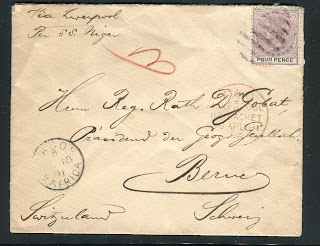 Via Liverpool
Per S.S. Niger
FOUR PENCE
Herrn Reg. Rath D. Gobat,
Präsident der Geogr. Gesellsch.
PACKET
Berne
LAGOS
10
91
W. AFRICA
Switzerland
Schweiz